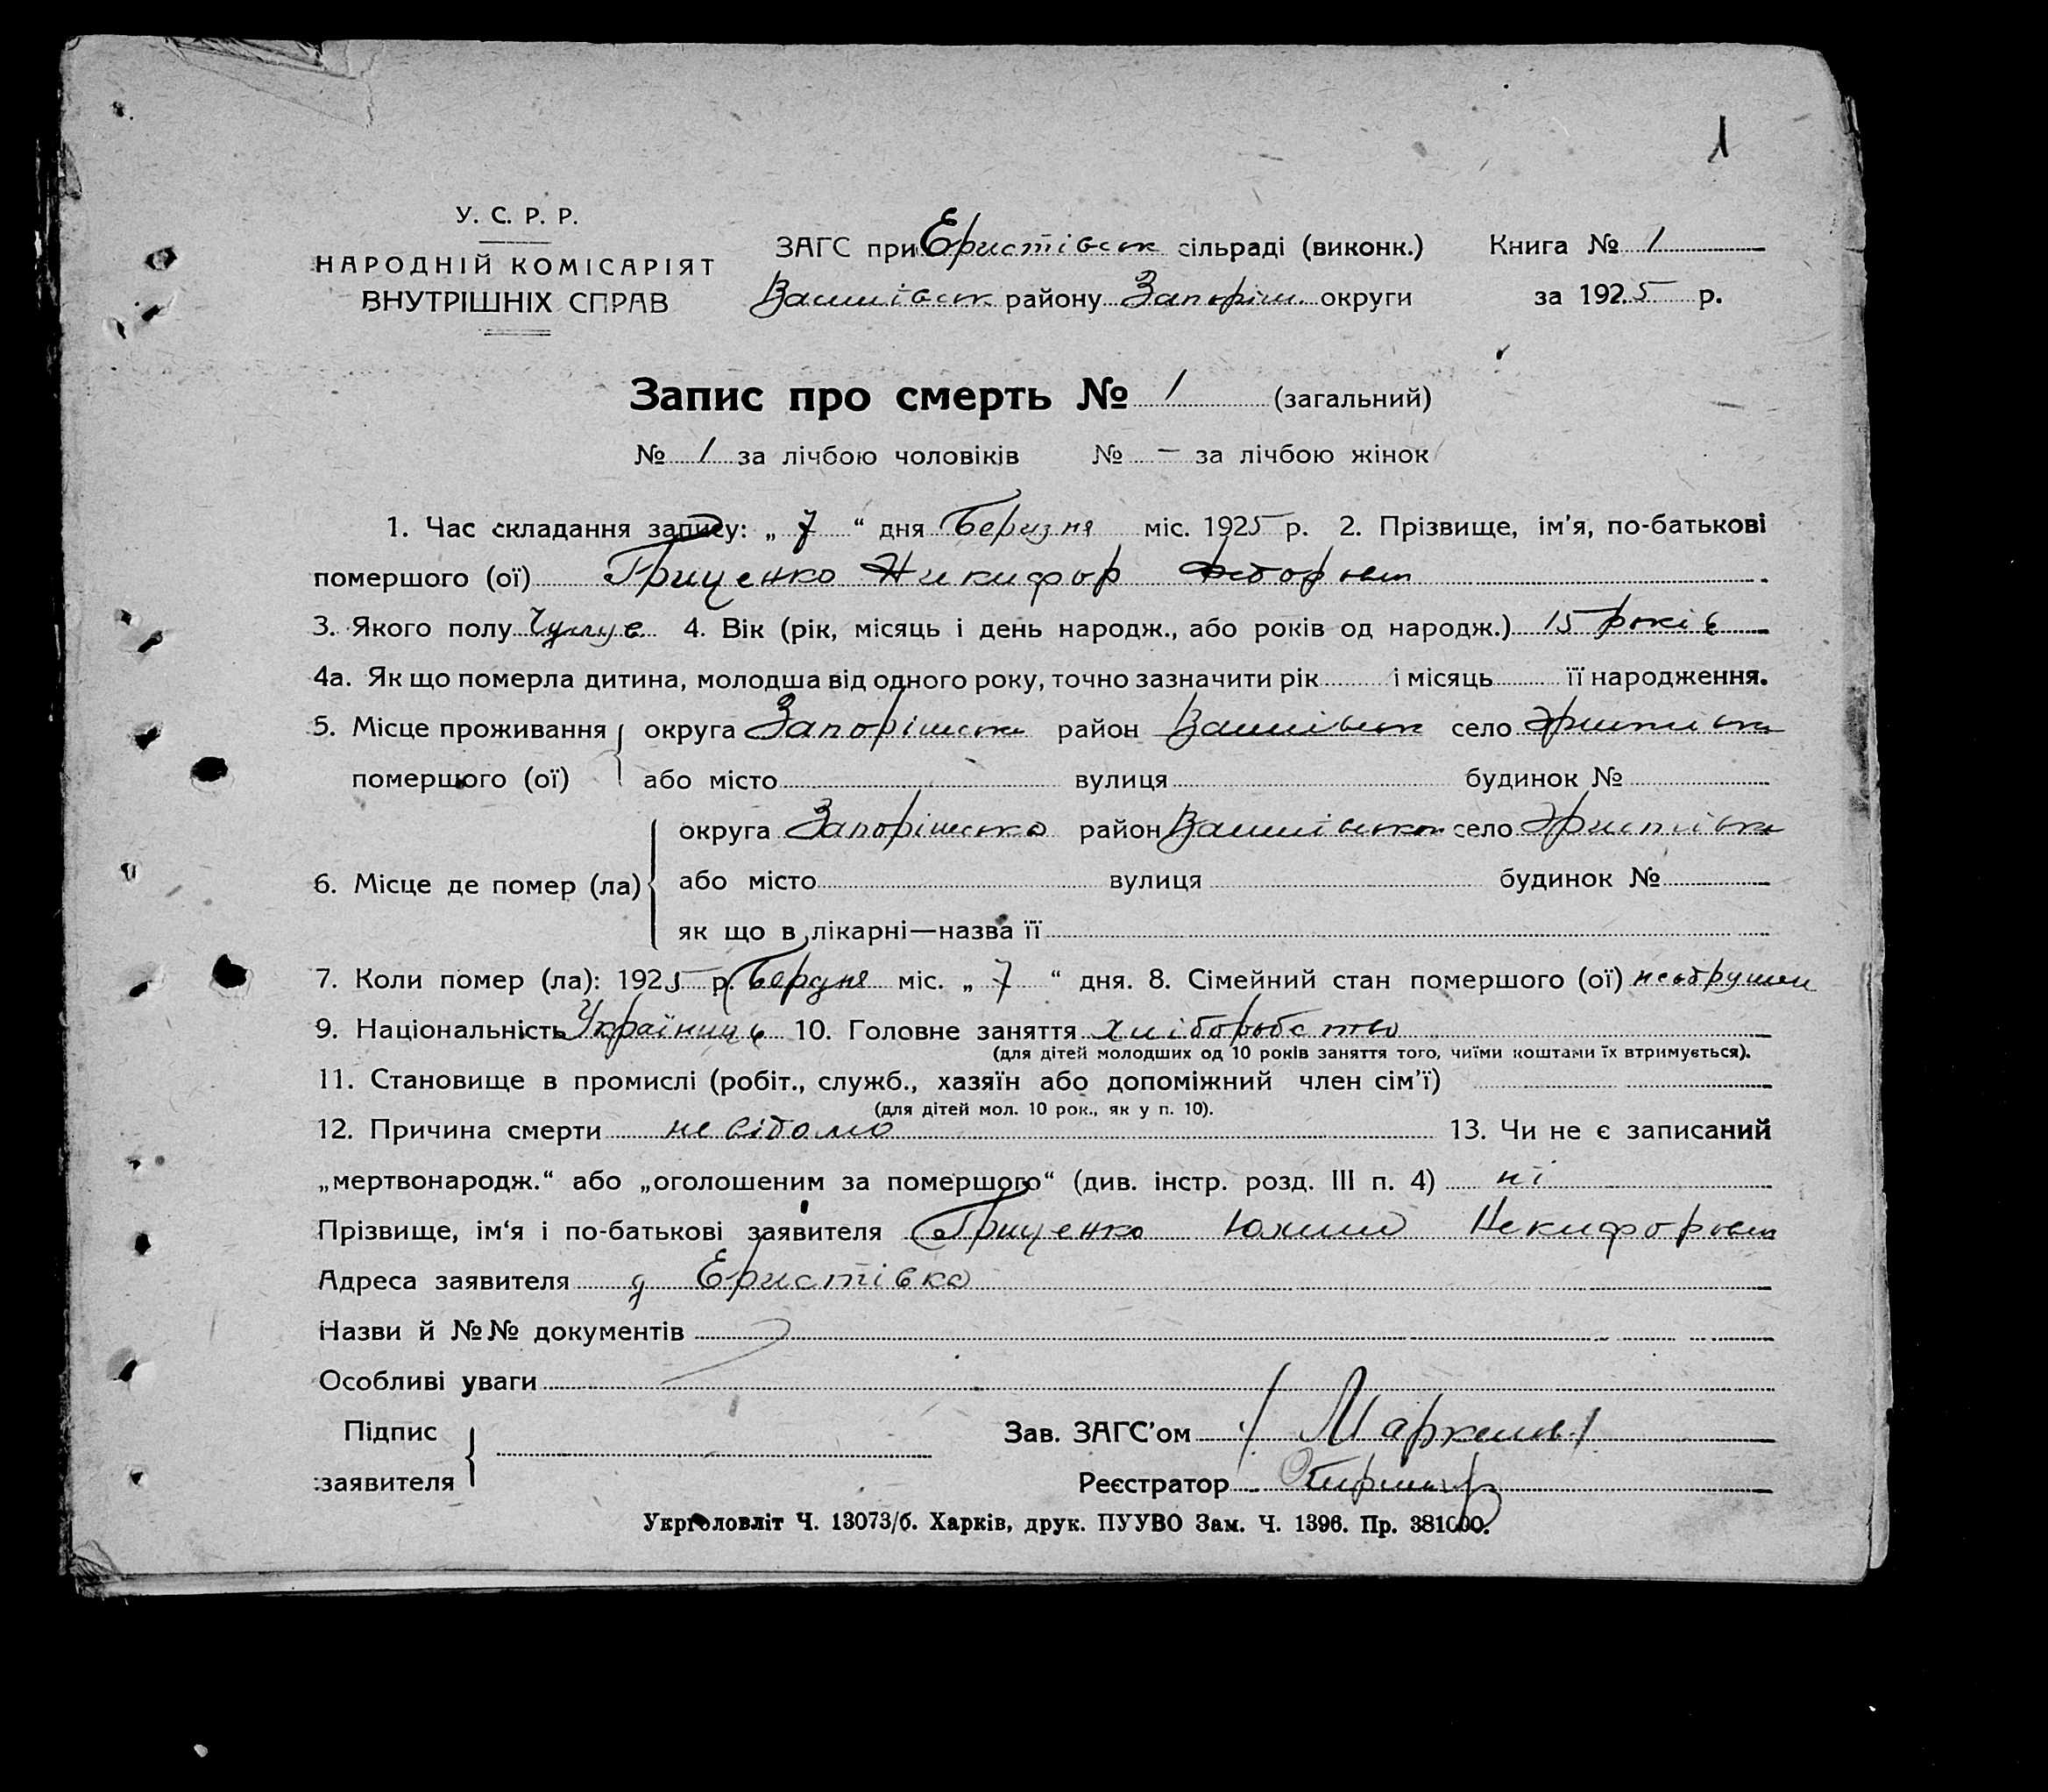 1
У. С. Р. Р.
НАРОДНІЙ КОМІСАРІЯТ
ВНУТРІШНІХ СПРАВ
ЗАГС при Еристівськ сільраді (виконк.)
Василівськ району Запоріш округи
Книга № 1
за 1925 р.
Запис про смерть № 1 (загальний)
№ 1 за лічбою чоловіків № — за лічбою жінок
1. Час складання запису: „ 7 “ дня Березня міс. 1925 р. 2. Прізвище, ім'я, по-батькові
помершого (ої) Гриценко Никифор
3. Якого полу 4. Вік (рік, місяць і день народж., або років од народж.) 15 років
4а. Як що померла дитина, молодша від одного року, точно зазначити рік і місяць її народження.
5. Місце проживання округа Запорішська район Василівськ село
помершого (ої) або місто вулиця будинок №
округа Запорішська район Василівськ село
6. Місце де помер (ла) або місто вулиця будинок №
як що в лікарні—назва її
7. Коли помер (ла): 1925 р. міс. „ 7 “ дня. 8. Сімейний стан помершого (ої)
9. Національність Українець 10. Головне заняття хліборобство
(для дітей молодших од 10 років заняття того, чиїми коштами їх втримується).
11. Становище в промислі (робіт., служб., хазяїн або допоміжний член сім'ї)
(для дітей мол. 10 рок., як у п. 10).
12. Причина смерти невідомо 13. Чи не є записаний
„мертвонародж.“ або „оголошеним за помершого“ (див. інстр. розд. III п. 4) ні
Прізвище, ім'я і по-батькові заявителя Гриценко
Адреса заявителя д Еристівка
Назви й №№ документів
Особливі уваги
Підпис
заявителя
Зав. ЗАГС'ом
Реєстратор
Укрголовліт Ч. 13073/б. Харків, друк. ПУУВО Зам. Ч. 1396. Пр. 381000.